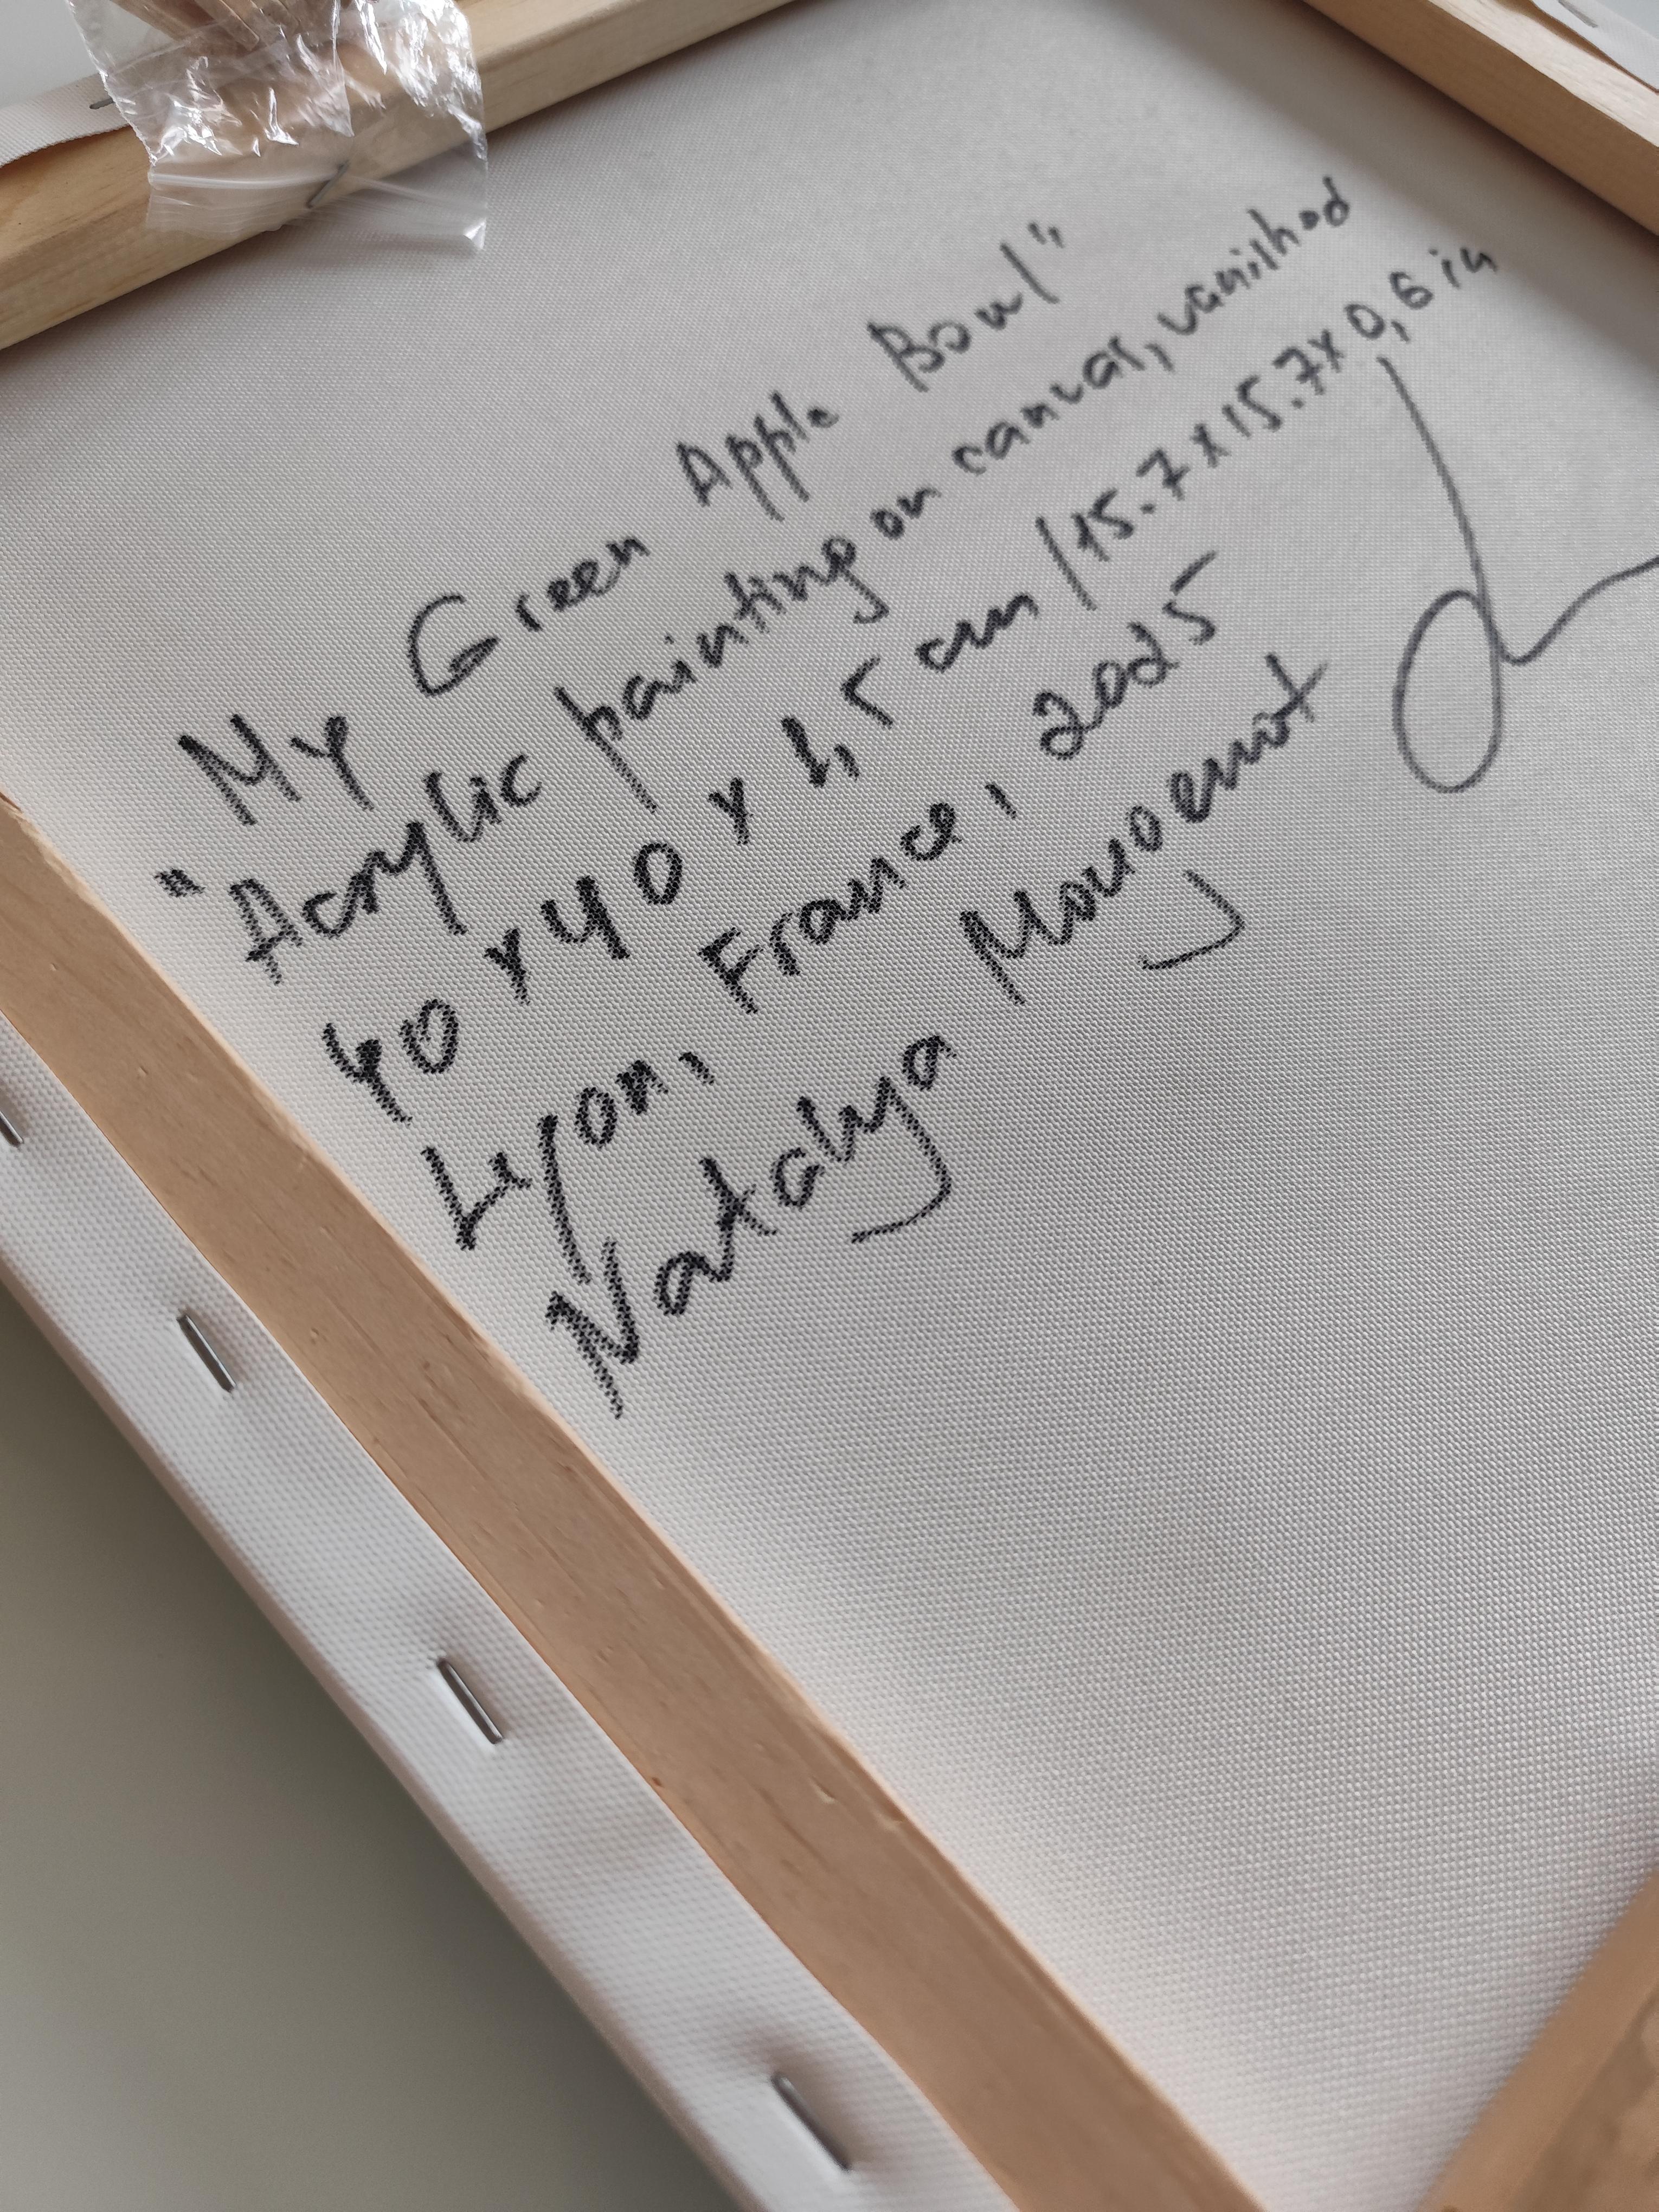 "My Green Apple Bowl"
Acrylic painting on canvas, vanished
40 x 40 x 1,5 cm / 15.7 x 15.7 x 0,6 in
Lyon, France, 2025
Natalya Mougenot